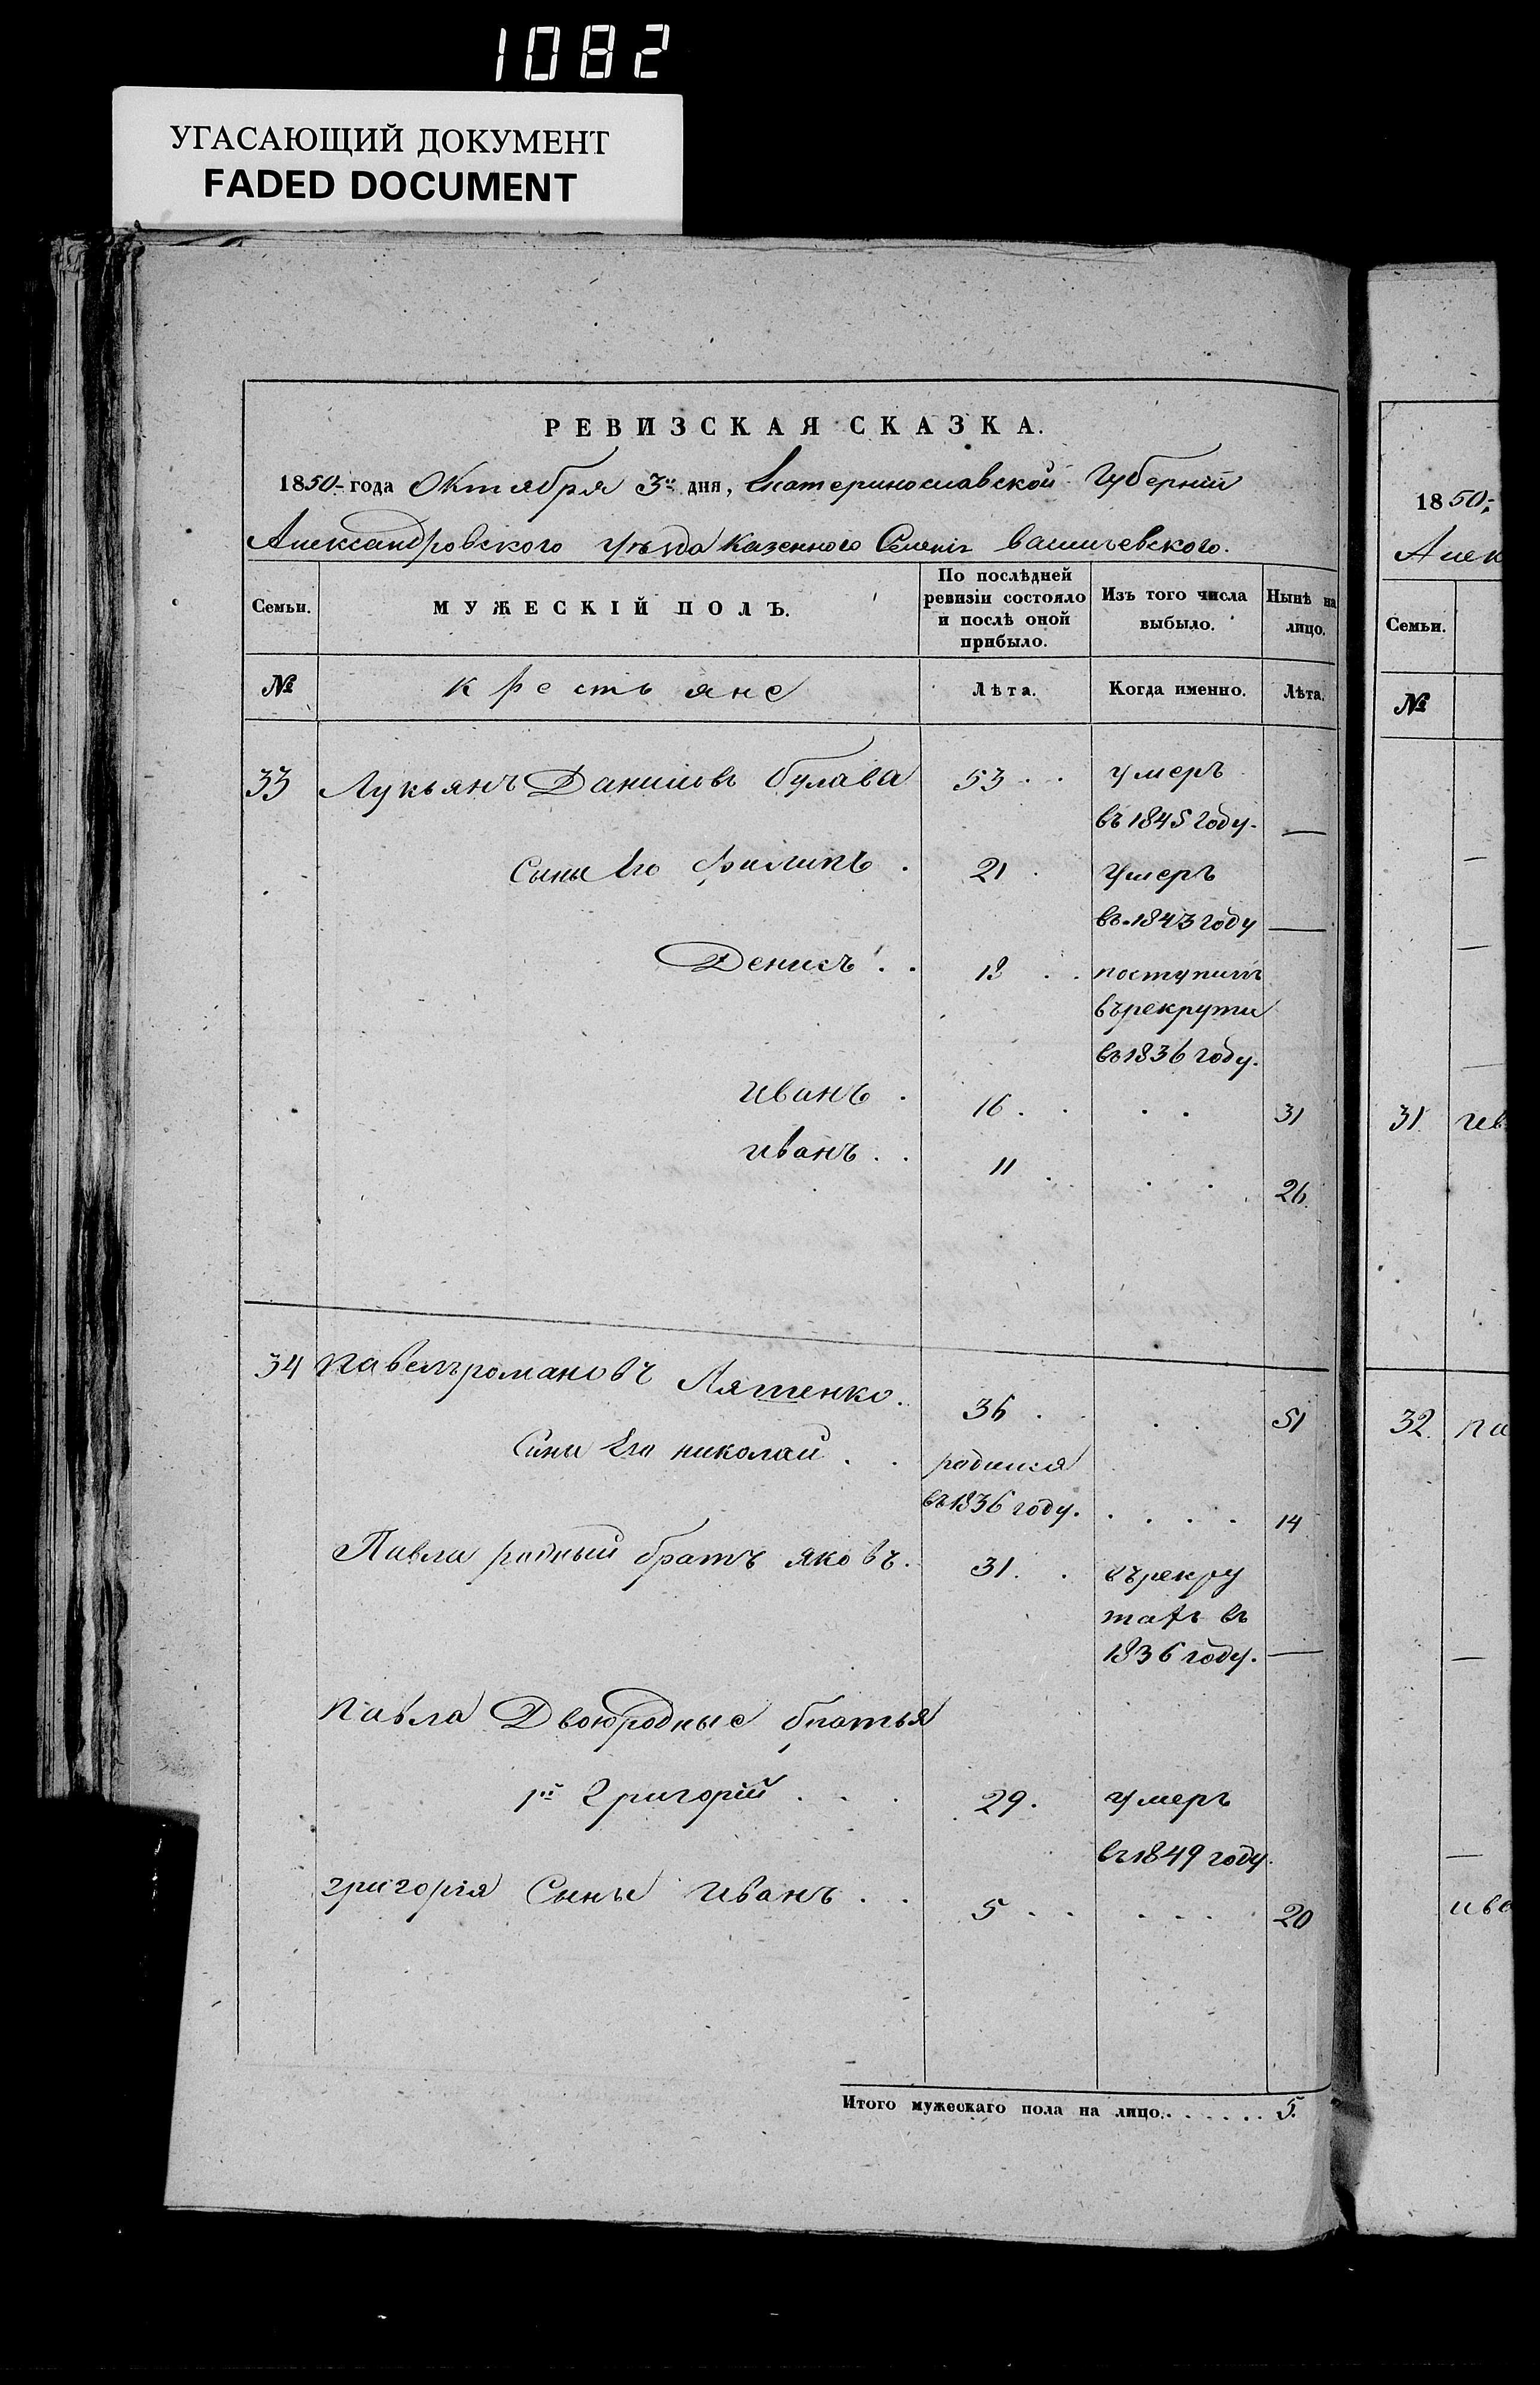 1082
УГАСАЮЩИЙ ДОКУМЕНТ
FADED DOCUMENT
РЕВИЗСКАЯ СКАЗКА.
1850 года Октября 3го дня, Екатеринославской Губернiи
Александровского уѣзда Казенного Селенiя
Семьи. МУЖЕСКІЙ ПОЛЪ. По послѣдней ревизіи состояло и послѣ оной прибыло. Изъ того числа выбыло. Нынѣ на лицо.
№ крестьяне Лѣта. Когда именно. Лѣта.
33 Лукьянъ Даниловъ булава 53 умеръ
въ 1845 году. —
Сыны Его Филипъ 21 умеръ
въ 1843 году —
Денисъ 18 поступилъ
въ рекруты
въ 1836 году.
иванъ 16 31
иванъ 11 26
34 павелъ романовъ Ляшенко. 36 51
Сыны Его николай родился
въ 1836 году. 14
Павла родный братъ яковъ. 31 въ рекру
тахъ въ
1836 году. —
павла Двоюродные братья
1й Григорiй 29. умеръ
въ 1849 году.
григорiя Сынъ иванъ 5 20
Итого мужескаго пола на лицо. 5.
1850
Алек
Семьи.
№
31 ив
32. па
ива